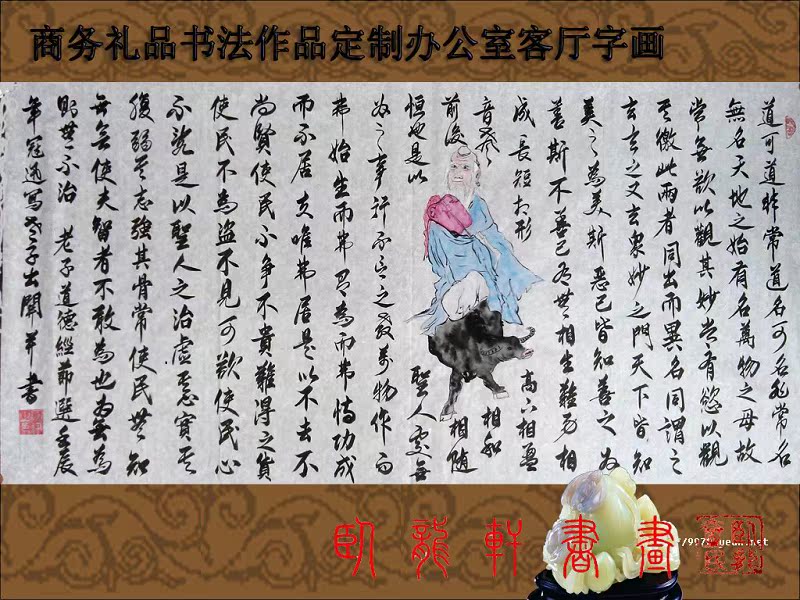 商务礼品书法作品定制办公室客厅字画
道可道非常道名可名非常名
無名天地之始有名萬物之母故
常無欲以觀其妙常有慾以觀
其徼此兩者同出而異名同謂之
玄玄之又玄衆妙之門天下皆知
美之為美斯惡已皆知善之為
善斯不善已有無相生難易相
成長短相形 高下相盈
音聲 相和
前後 相随
恒也是以 聖人處無
為之事行不言之教萬物作而
弗始生而弗有為而弗恃功成
而不居夫唯弗居是以不去不
尚賢使民不争不貴難得之貨
使民不為盗不見可欲使民心
不亂是以聖人之治虚其心實其
腹弱其志強其骨常使民無知
無欲使夫智者不敢為也為無為
則無不治 老子道德經節選壬辰
年 寫老子出關并書
臥龍軒書畫